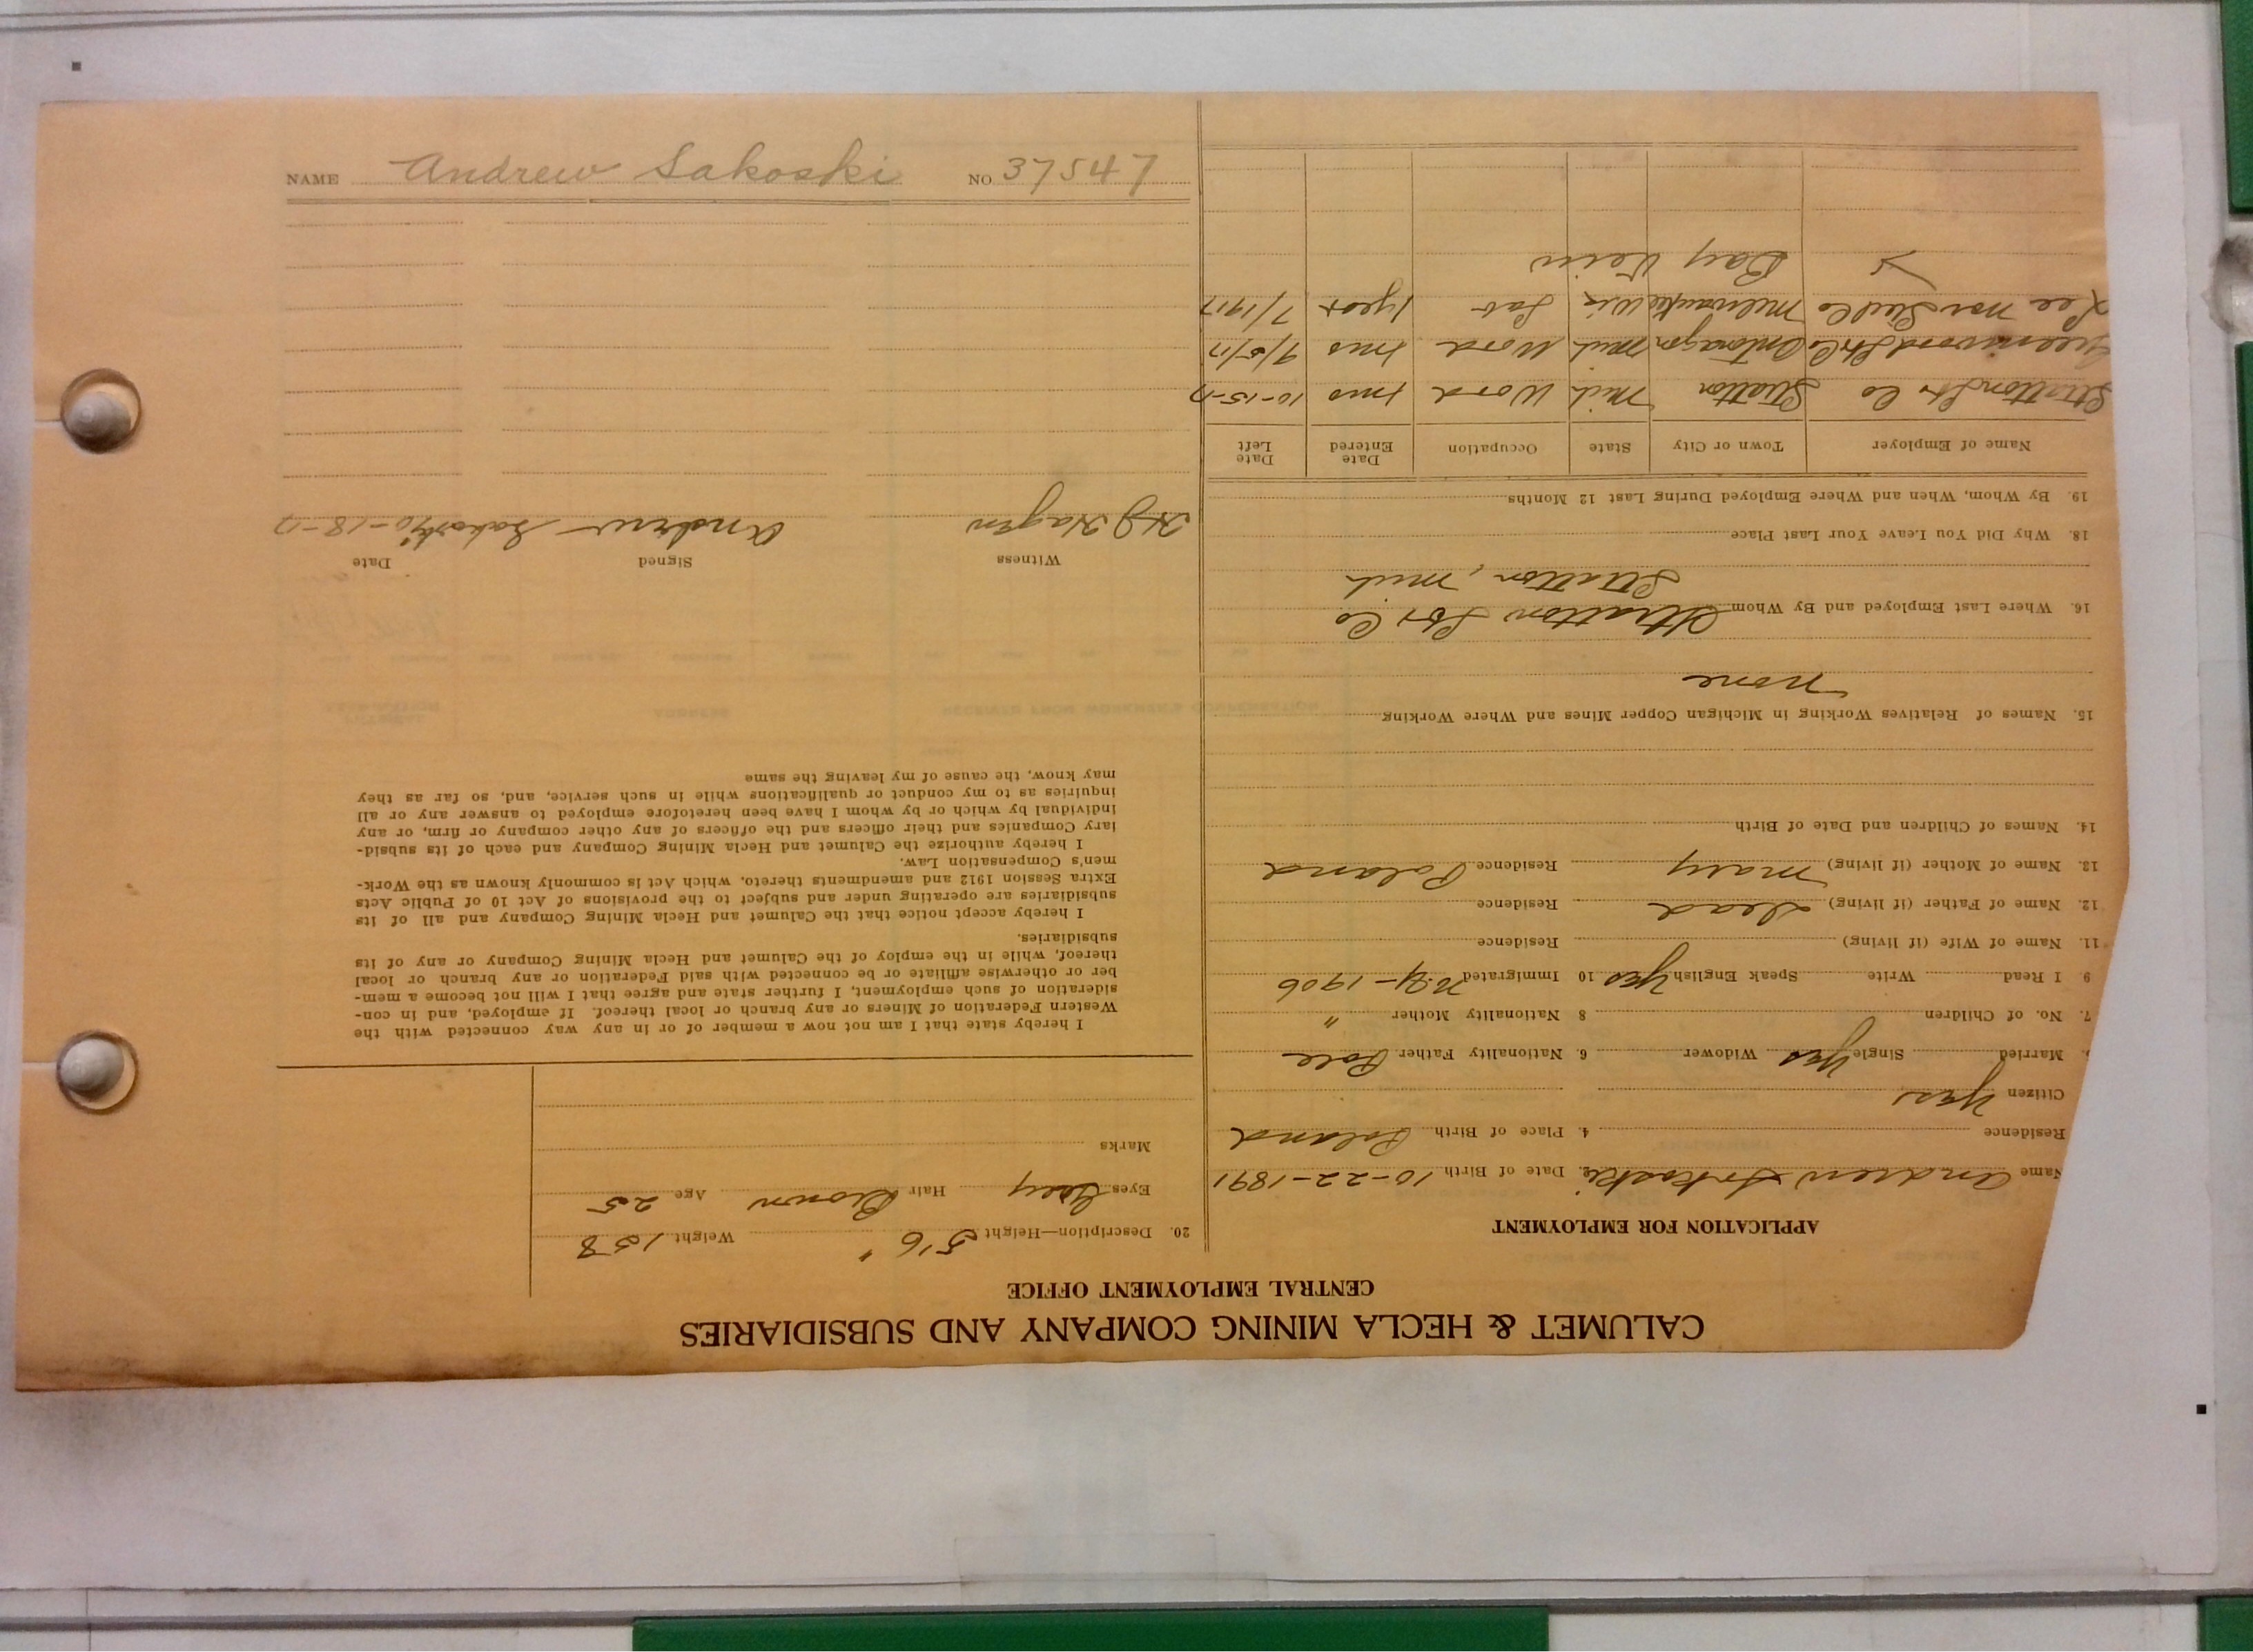 CALUMET & HECLA MINING COMPANY AND SUBSIDIARIES
CENTRAL EMPLOYMENT OFFICE
APPLICATION FOR EMPLOYMENT
Name Andrew 2. Date of Birth 10-22-1891
Residence 4. Place of Birth Poland
Citizen Yes
Married Single Yes Widower 6. Nationality Father Pole
7. No. of Children 8 Nationality Mother "
9 I Read Write Speak English Yes 10 Immigrated N.Y- 1906
11. Name of Wife (if living) Residence
12. Name of Father (if living) Dead Residence
13. Name of Mother (if living) Mary Residence Poland
14. Names of Children and Date of Birth
15. Names of Relatives Working in Michigan Copper Mines and Where Working
None
16. Where Last Employed and By Whom Stratton Lbr Co
Stratton, Mich
18. Why Did You Leave Your Last Place
19. By Whom, When and Where Employed During Last 12 Months
Name of Employer Town or City State Occupation Date Entered Date Left
Stratton Lbr Co Stratton Mich Word 1 mo 10-15-17
Greenwood Lbr Co Ontonagon Mich Word 1 mo 9/5/17
Milwaukee Wis Lab 1 year 7/1917
Bay
20. Description—Height 5'6" Weight 158
Eyes Grey Hair Brown Age 25
Marks
I hereby state that I am not now a member of or in any way connected with the
Western Federation of Miners or any branch or local thereof. If employed, and in con-
sideration of such employment, I further state and agree that I will not become a mem-
ber or otherwise affiliate or be connected with said Federation or any branch or local
thereof, while in the employ of the Calumet and Hecla Mining Company or any of its
subsidiaries.
I hereby accept notice that the Calumet and Hecla Mining Company and all of its
subsidiaries are operating under and subject to the provisions of Act 10 of Public Acts
Extra Session 1912 and amendments thereto, which Act is commonly known as the Work-
men's Compensation Law.
I hereby authorize the Calumet and Hecla Mining Company and each of its subsid-
iary Companies and their officers and the officers of any other company or firm, or any
individual by which or by whom I have been heretofore employed to answer any or all
inquiries as to my conduct or qualifications while in such service, and, so far as they
may know, the cause of my leaving the same
Witness Signed Date
H J Hagen Andrew Sakoski 10-18-17
NAME Andrew Sakoski NO 37547